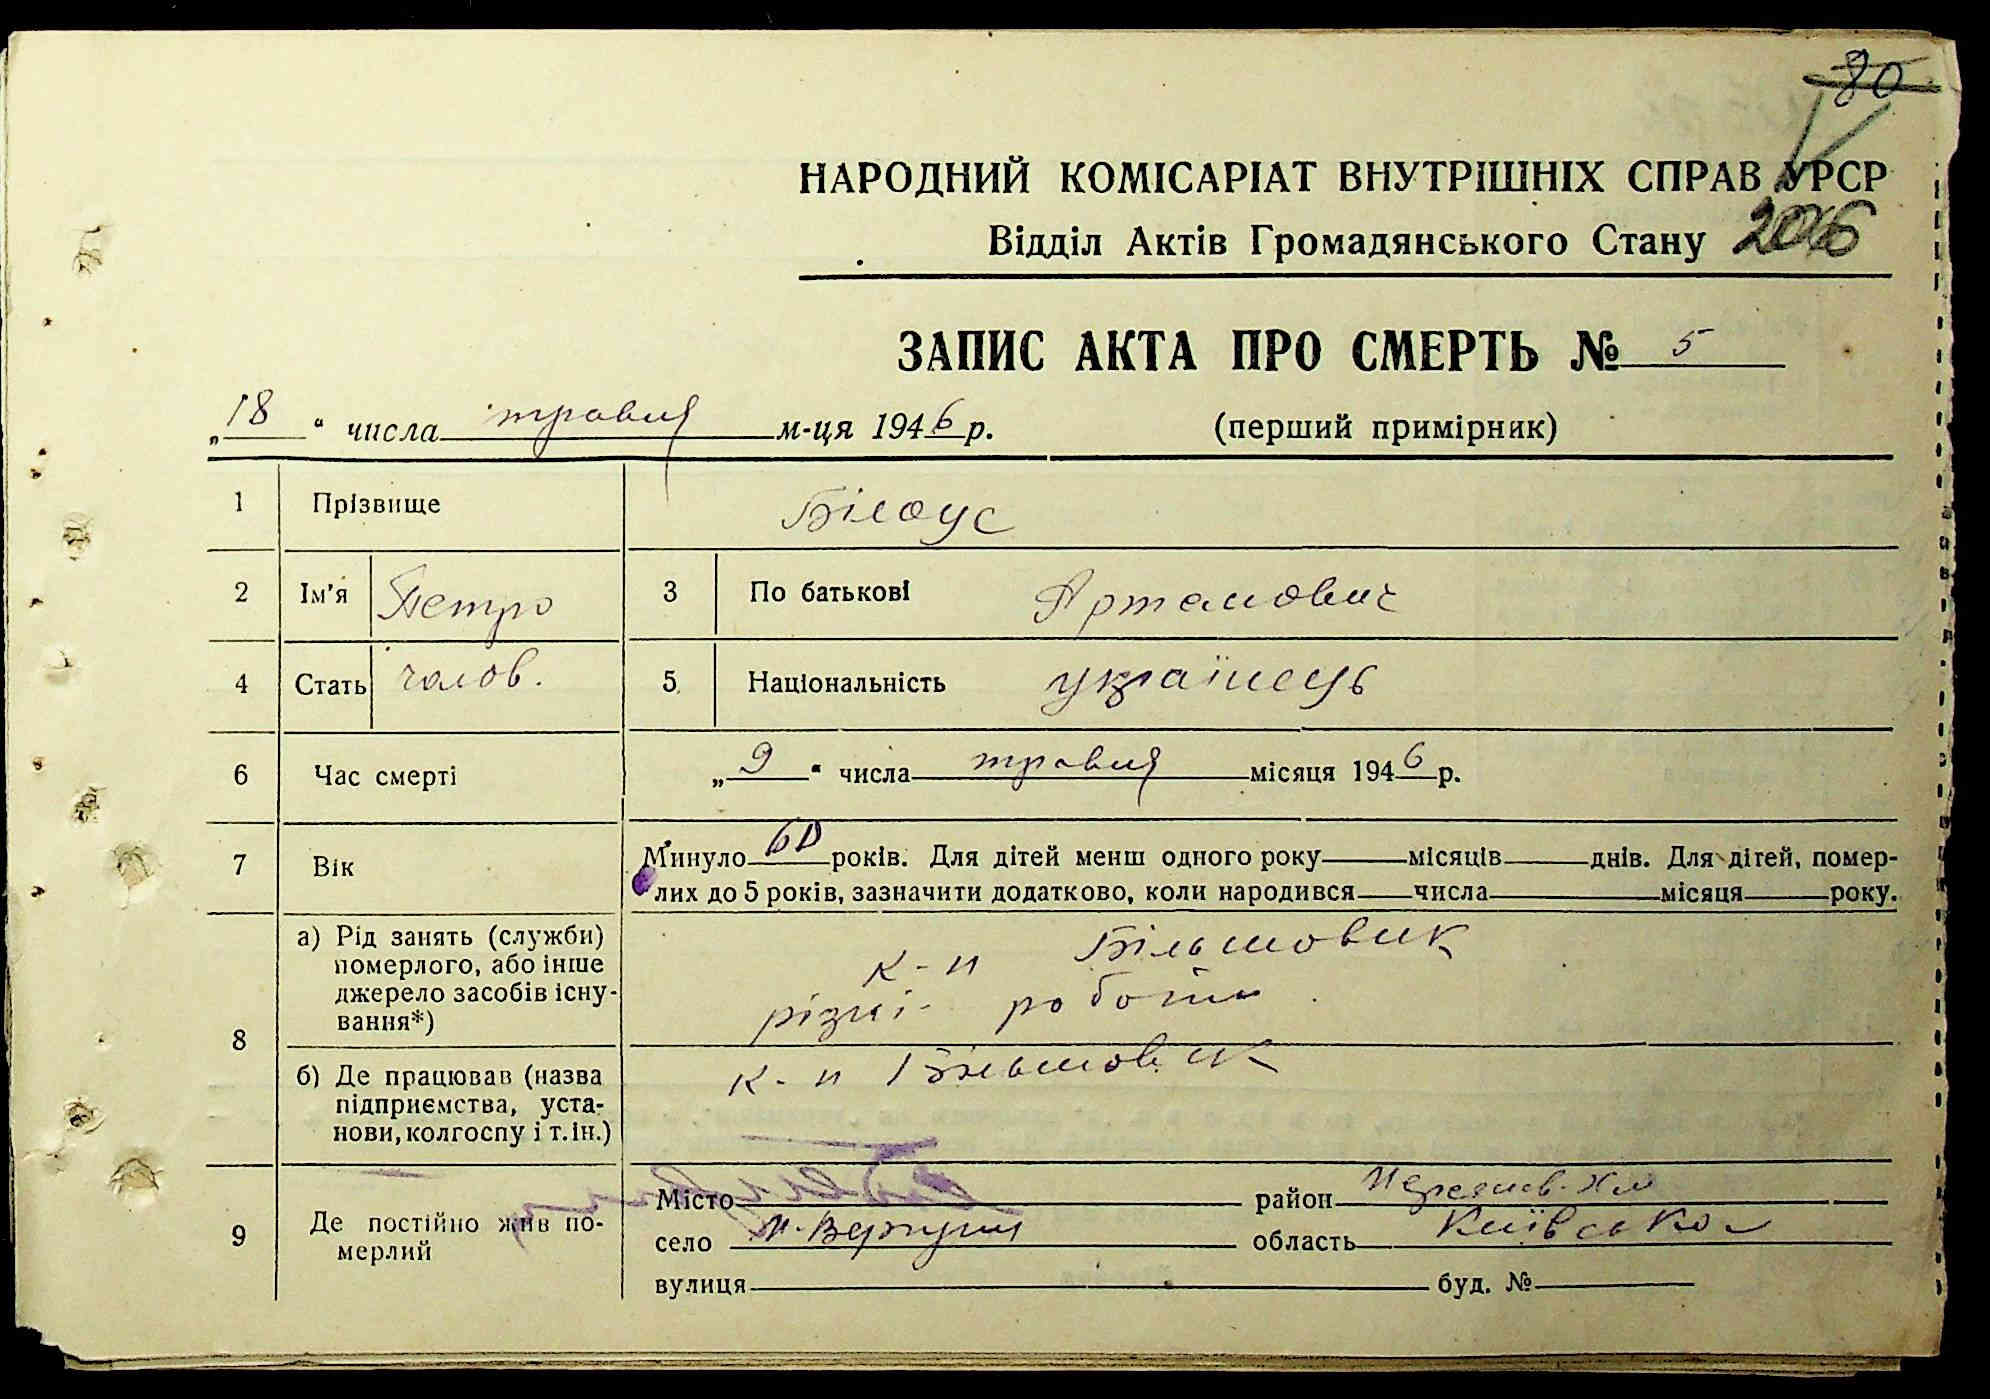 80
НАРОДНИЙ КОМІСАРІАТ ВНУТРІШНІХ СПРАВ УРСР
Відділ Актів Громадянського Стану
ЗАПИС АКТА ПРО СМЕРТЬ № 5
„18“ числа травня м-ця 1946 р. (перший примірник)
1 Прізвище Білоус
2 Ім'я Петро 3 По батькові Артемович
4 Стать чолов. 5 Національність українець
6 Час смерті „9“ числа травня місяця 1946 р.
7 Вік Минуло 60 років. Для дітей менш одного року місяців днів. Для дітей, помер-
лих до 5 років, зазначити додатково, коли народився числа місяця року.
8 а) Рід занять (служби) померлого, або інше джерело засобів існу-вання*) к-п Більшовик
різні роботи
б) Де працював (назва підприємства, уста-нови, колгоспу і т. ін.) к-п Більшовик
9 Де постійно жив по-мерлий Місто район Переясв-Хм
село область Київська
вулиця буд. №